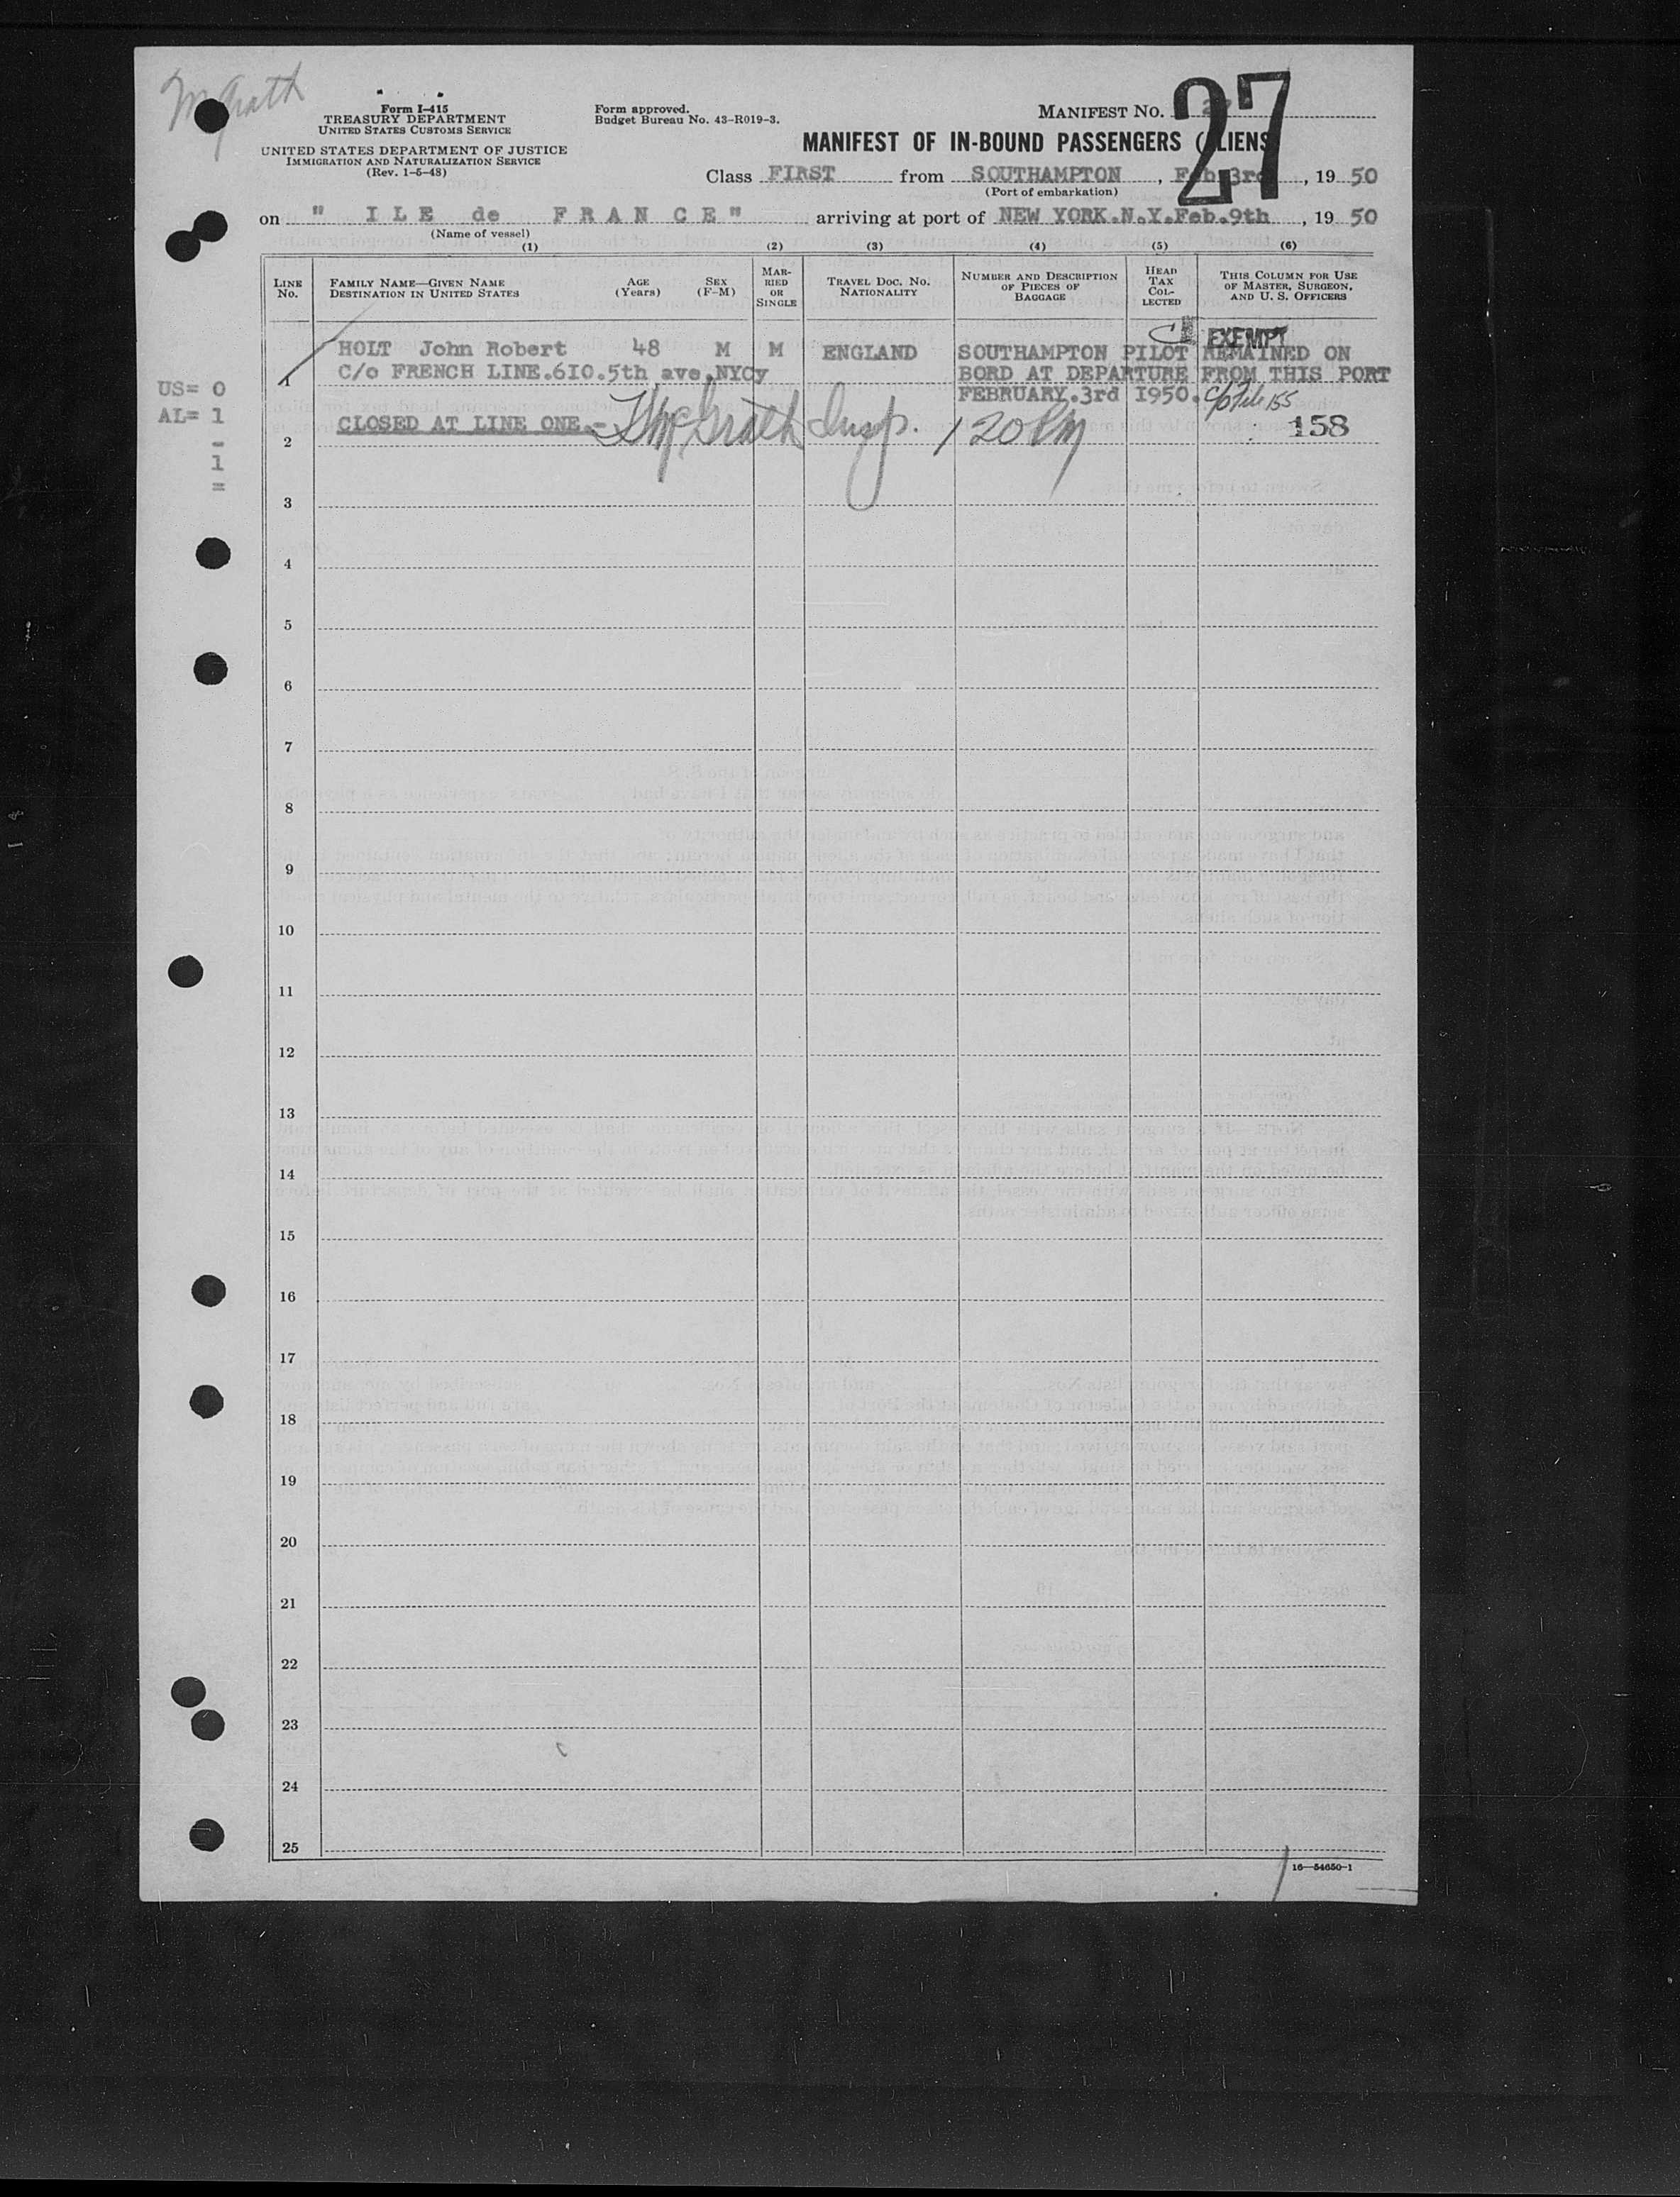 McGrath
Form I-415
TREASURY DEPARTMENT
UNITED STATES CUSTOMS SERVICE
UNITED STATES DEPARTMENT OF JUSTICE
IMMIGRATION AND NATURALIZATION SERVICE
(Rev. 1-5-48)
Form approved.
Budget Bureau No. 43-R019-3.
MANIFEST NO. 27
MANIFEST OF IN-BOUND PASSENGERS (ALIENS)
Class FIRST from SOUTHAMPTON, Feb 3rd, 19 50
(Port of embarkation)
on " ILE de FRANCE" arriving at port of NEW YORK.N.Y.Feb.9th, 19 50
(Name of vessel)
(1) (2) (3) (4) (5) (6)
LINE No. FAMILY NAME—GIVEN NAME DESTINATION IN UNITED STATES AGE (Years) SEX (F-M) MARRIED OR SINGLE TRAVEL DOC. NO. NATIONALITY NUMBER AND DESCRIPTION OF PIECES OF BAGGAGE HEAD TAX COLLECTED THIS COLUMN FOR USE OF MASTER, SURGEON, AND U. S. OFFICERS
EXEMPT
HOLT John Robert 48 M M ENGLAND SOUTHAMPTON PILOT REMAINED ON
1 C/o FRENCH LINE.6I0.5th ave.NYCy BORD AT DEPARTURE FROM THIS PORT
FEBRUARY.3rd I950.
US= 0
AL= 1
-
1
=
2 CLOSED AT LINE ONE.- McGrath Insp. 120 PM 158
3
4
5
6
7
8
9
10
11
12
13
14
15
16
17
18
19
20
21
22
23
24
25
16—54650-1